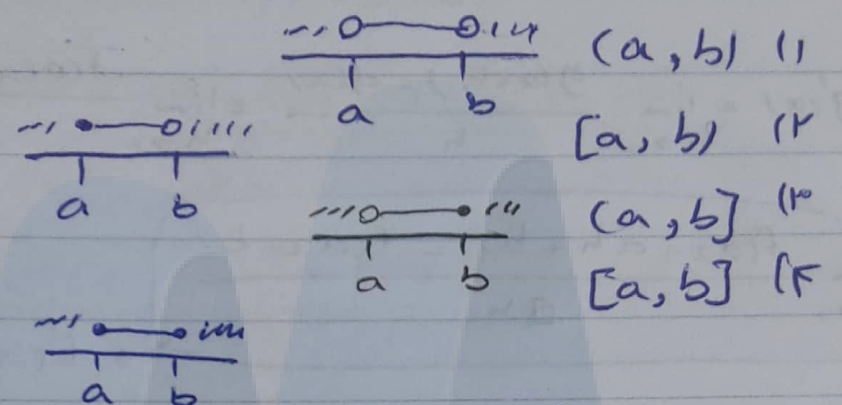 (a, b) (۱
a b
[a, b) (۲
a b
(a, b] (۳
a b
[a, b] (۴
a b